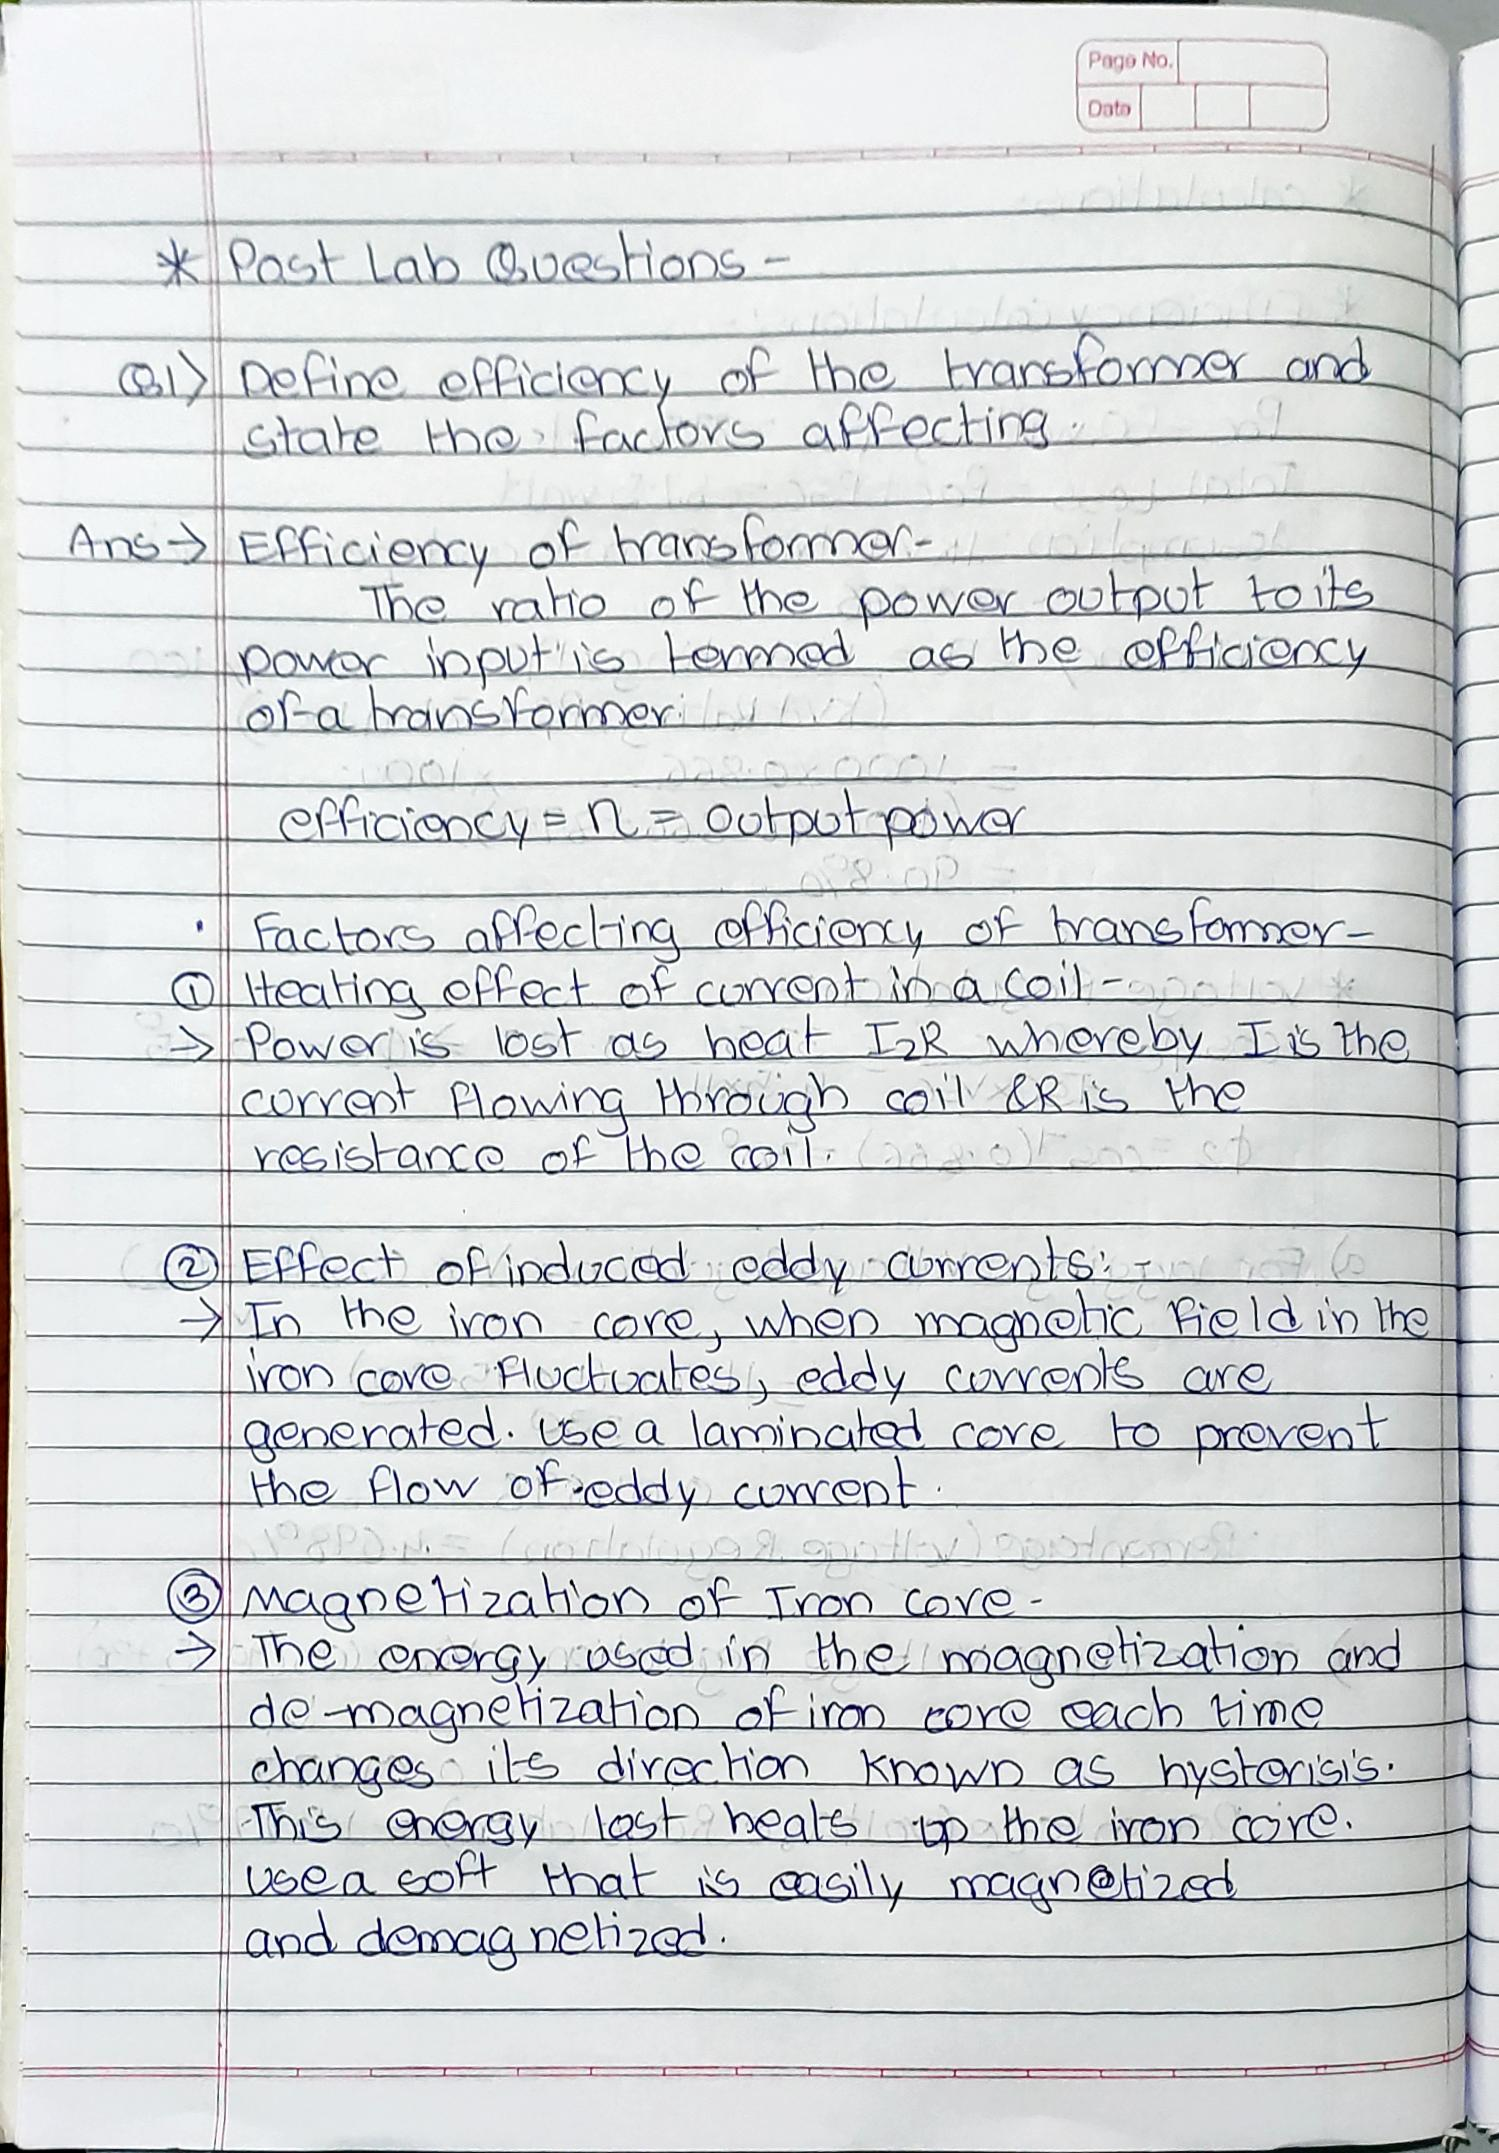 Page No.
Date
* Post Lab Questions -
Q1) Define efficiency of the transformer and
state the factors affecting.
Ans → Efficiency of transformer-
The ratio of the power output to its
power input is termed as the efficiency
of a transformer.
efficiency = η = output power
· Factors affecting efficiency of transformer-
① Heating effect of current in a coil-
→ Power is lost as heat I2R whereby I is the
current flowing through coil & R is the
resistance of the coil.
② Effect of induced eddy currents: -
→ In the iron core, when magnetic field in the
iron core fluctuates, eddy currents are
generated. Use a laminated core to prevent
the flow of eddy current.
③ Magnetization of Iron core -
→ The energy used in the magnetization and
de-magnetization of iron core each time
changes its direction known as hysterisis.
This energy lost heats up the iron core.
Use a soft that is easily magnetized
and demagnetized.